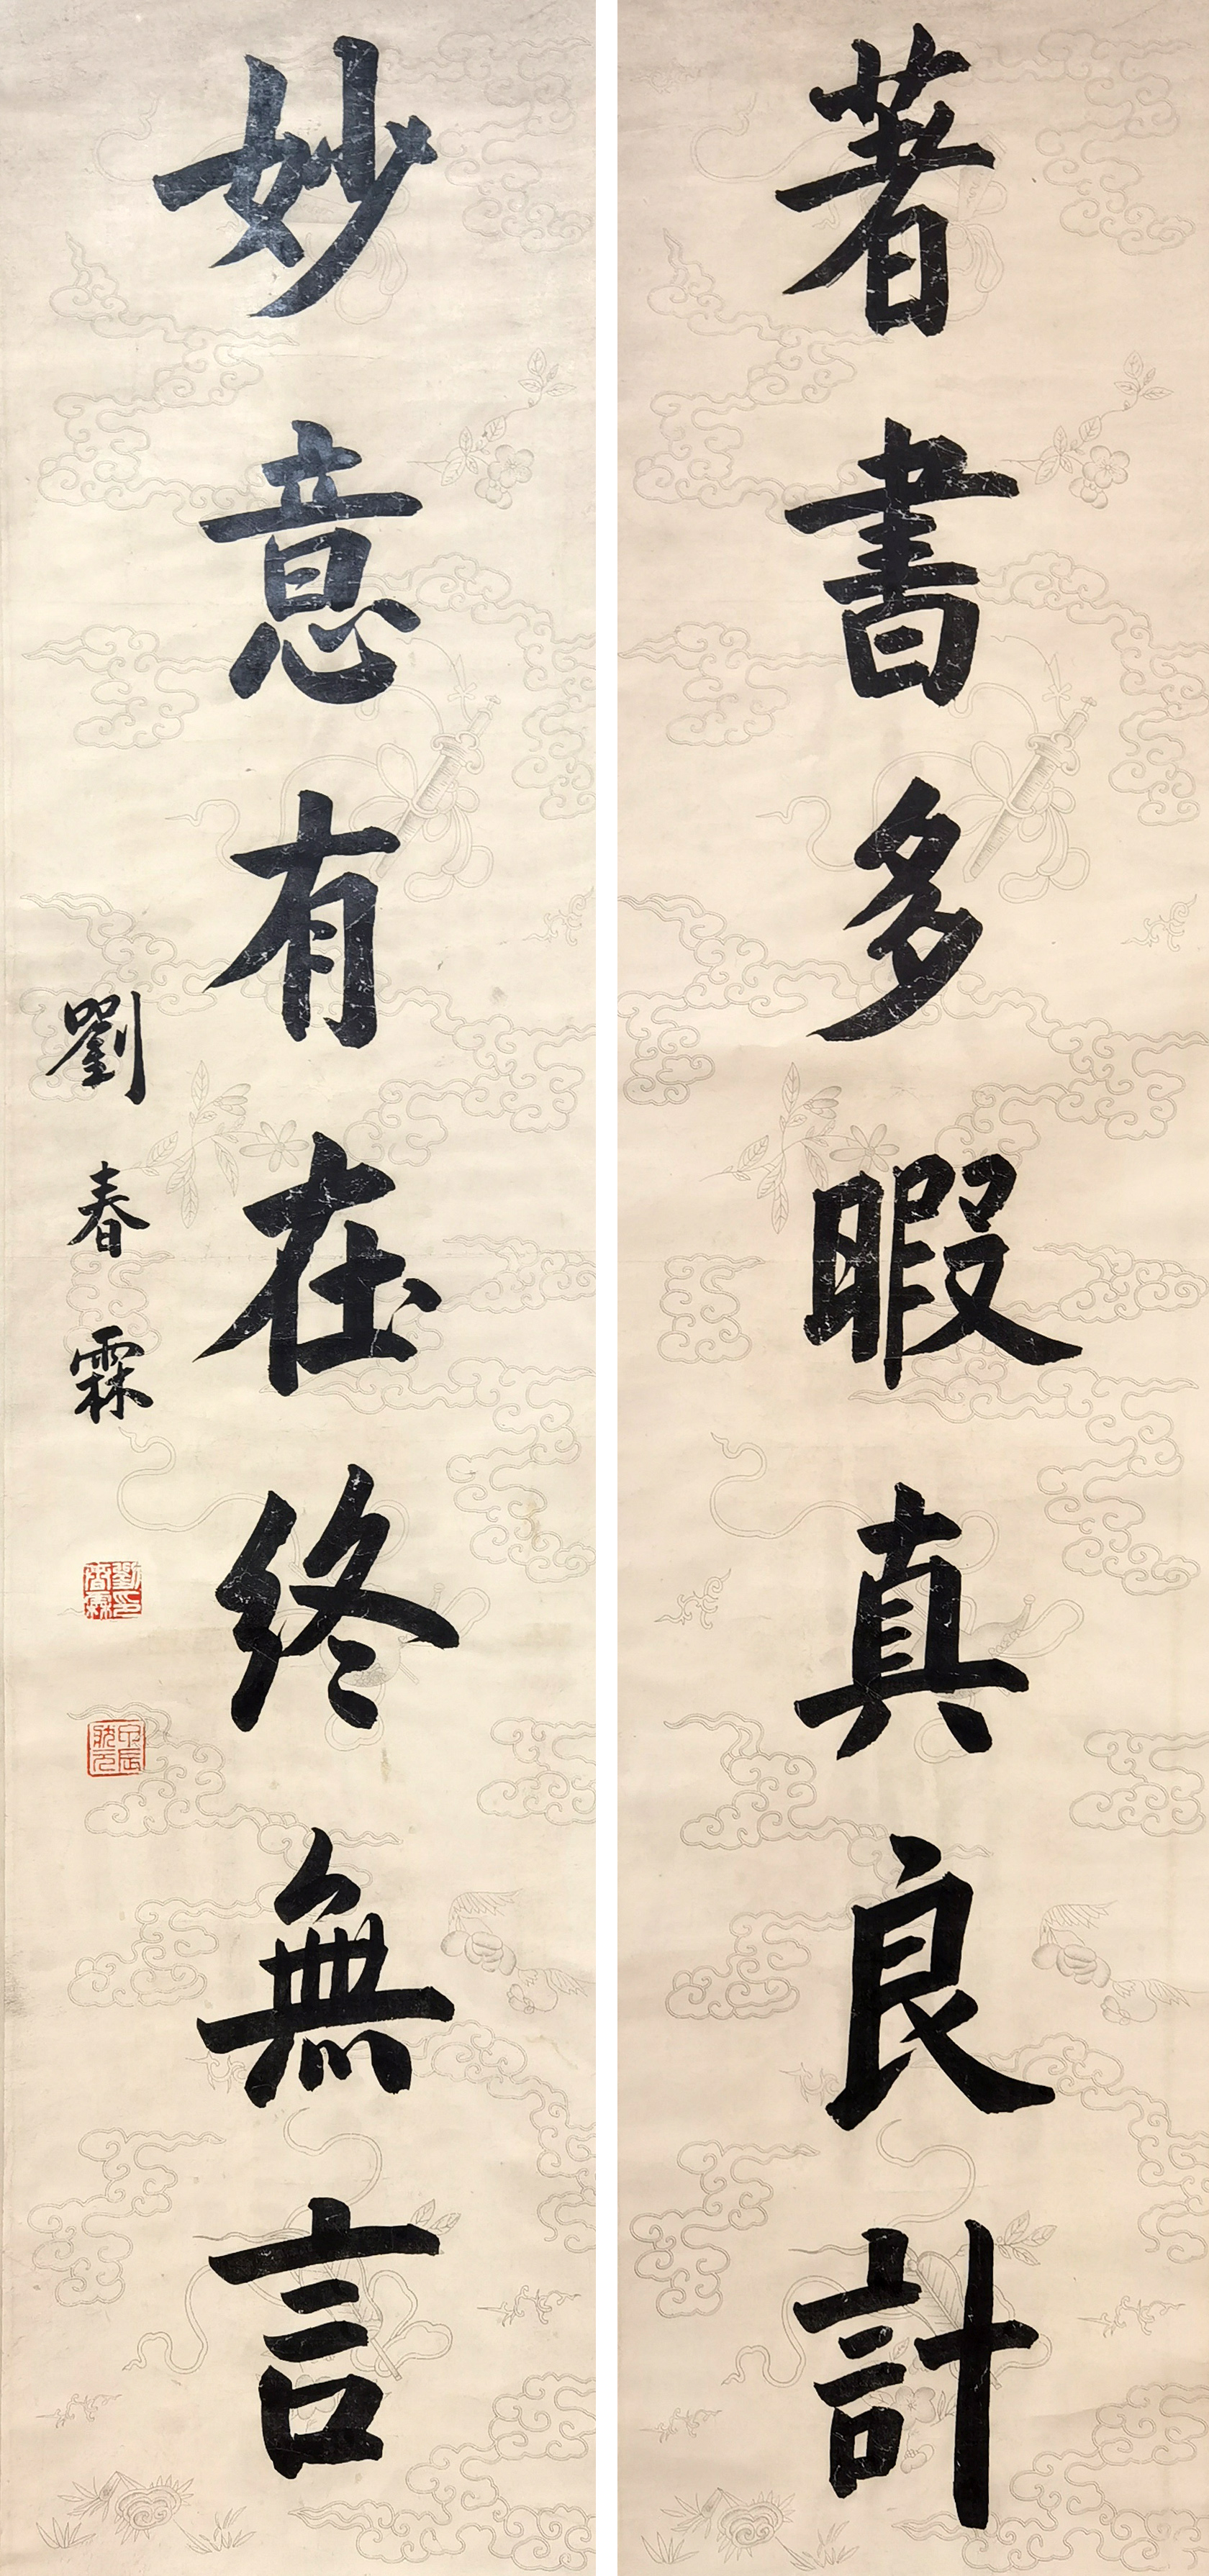 著書多暇真良計
妙意有在終無言
劉春霖
劉春霖印
甲辰狀元